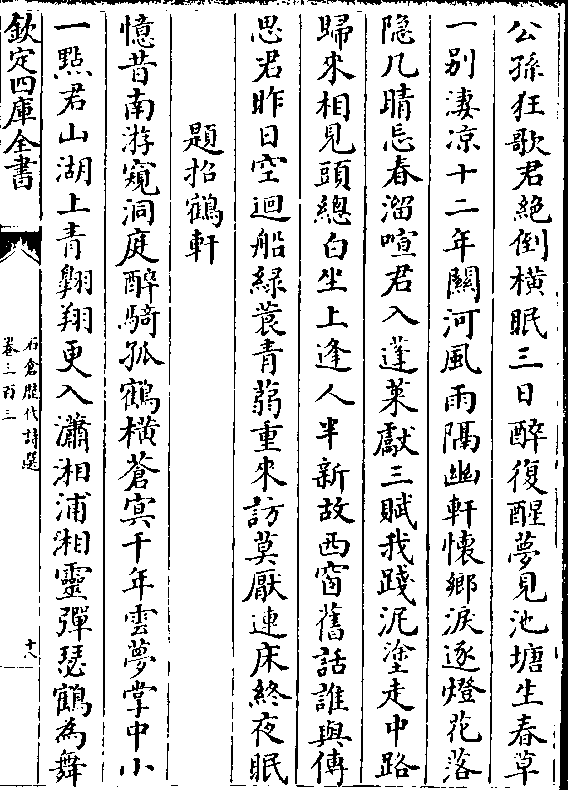 公孫狂歌君絶倒橫眠三日醉復醒夢見池塘生春草
一别淒凉十二年關河風雨隔幽軒懷鄉淚逐燈花落
隐几晴忘春溜喧君入蓬萊獻三賦我踐泥塗走中路
歸來相見頭總白坐上逢人半新故西窗舊話誰與傳
思君昨日空迴船緑蓑青蒻重來訪莫厭連床終夜眠
題招鶴軒
憶昔南游窺洞庭醉騎孤鶴横蒼冥千年雲夢掌中小
一點君山湖上青翱翔更入瀟湘浦湘靈彈瑟鶴為舞
欽定四庫全書
石倉歴代詩選
卷三百三
十八